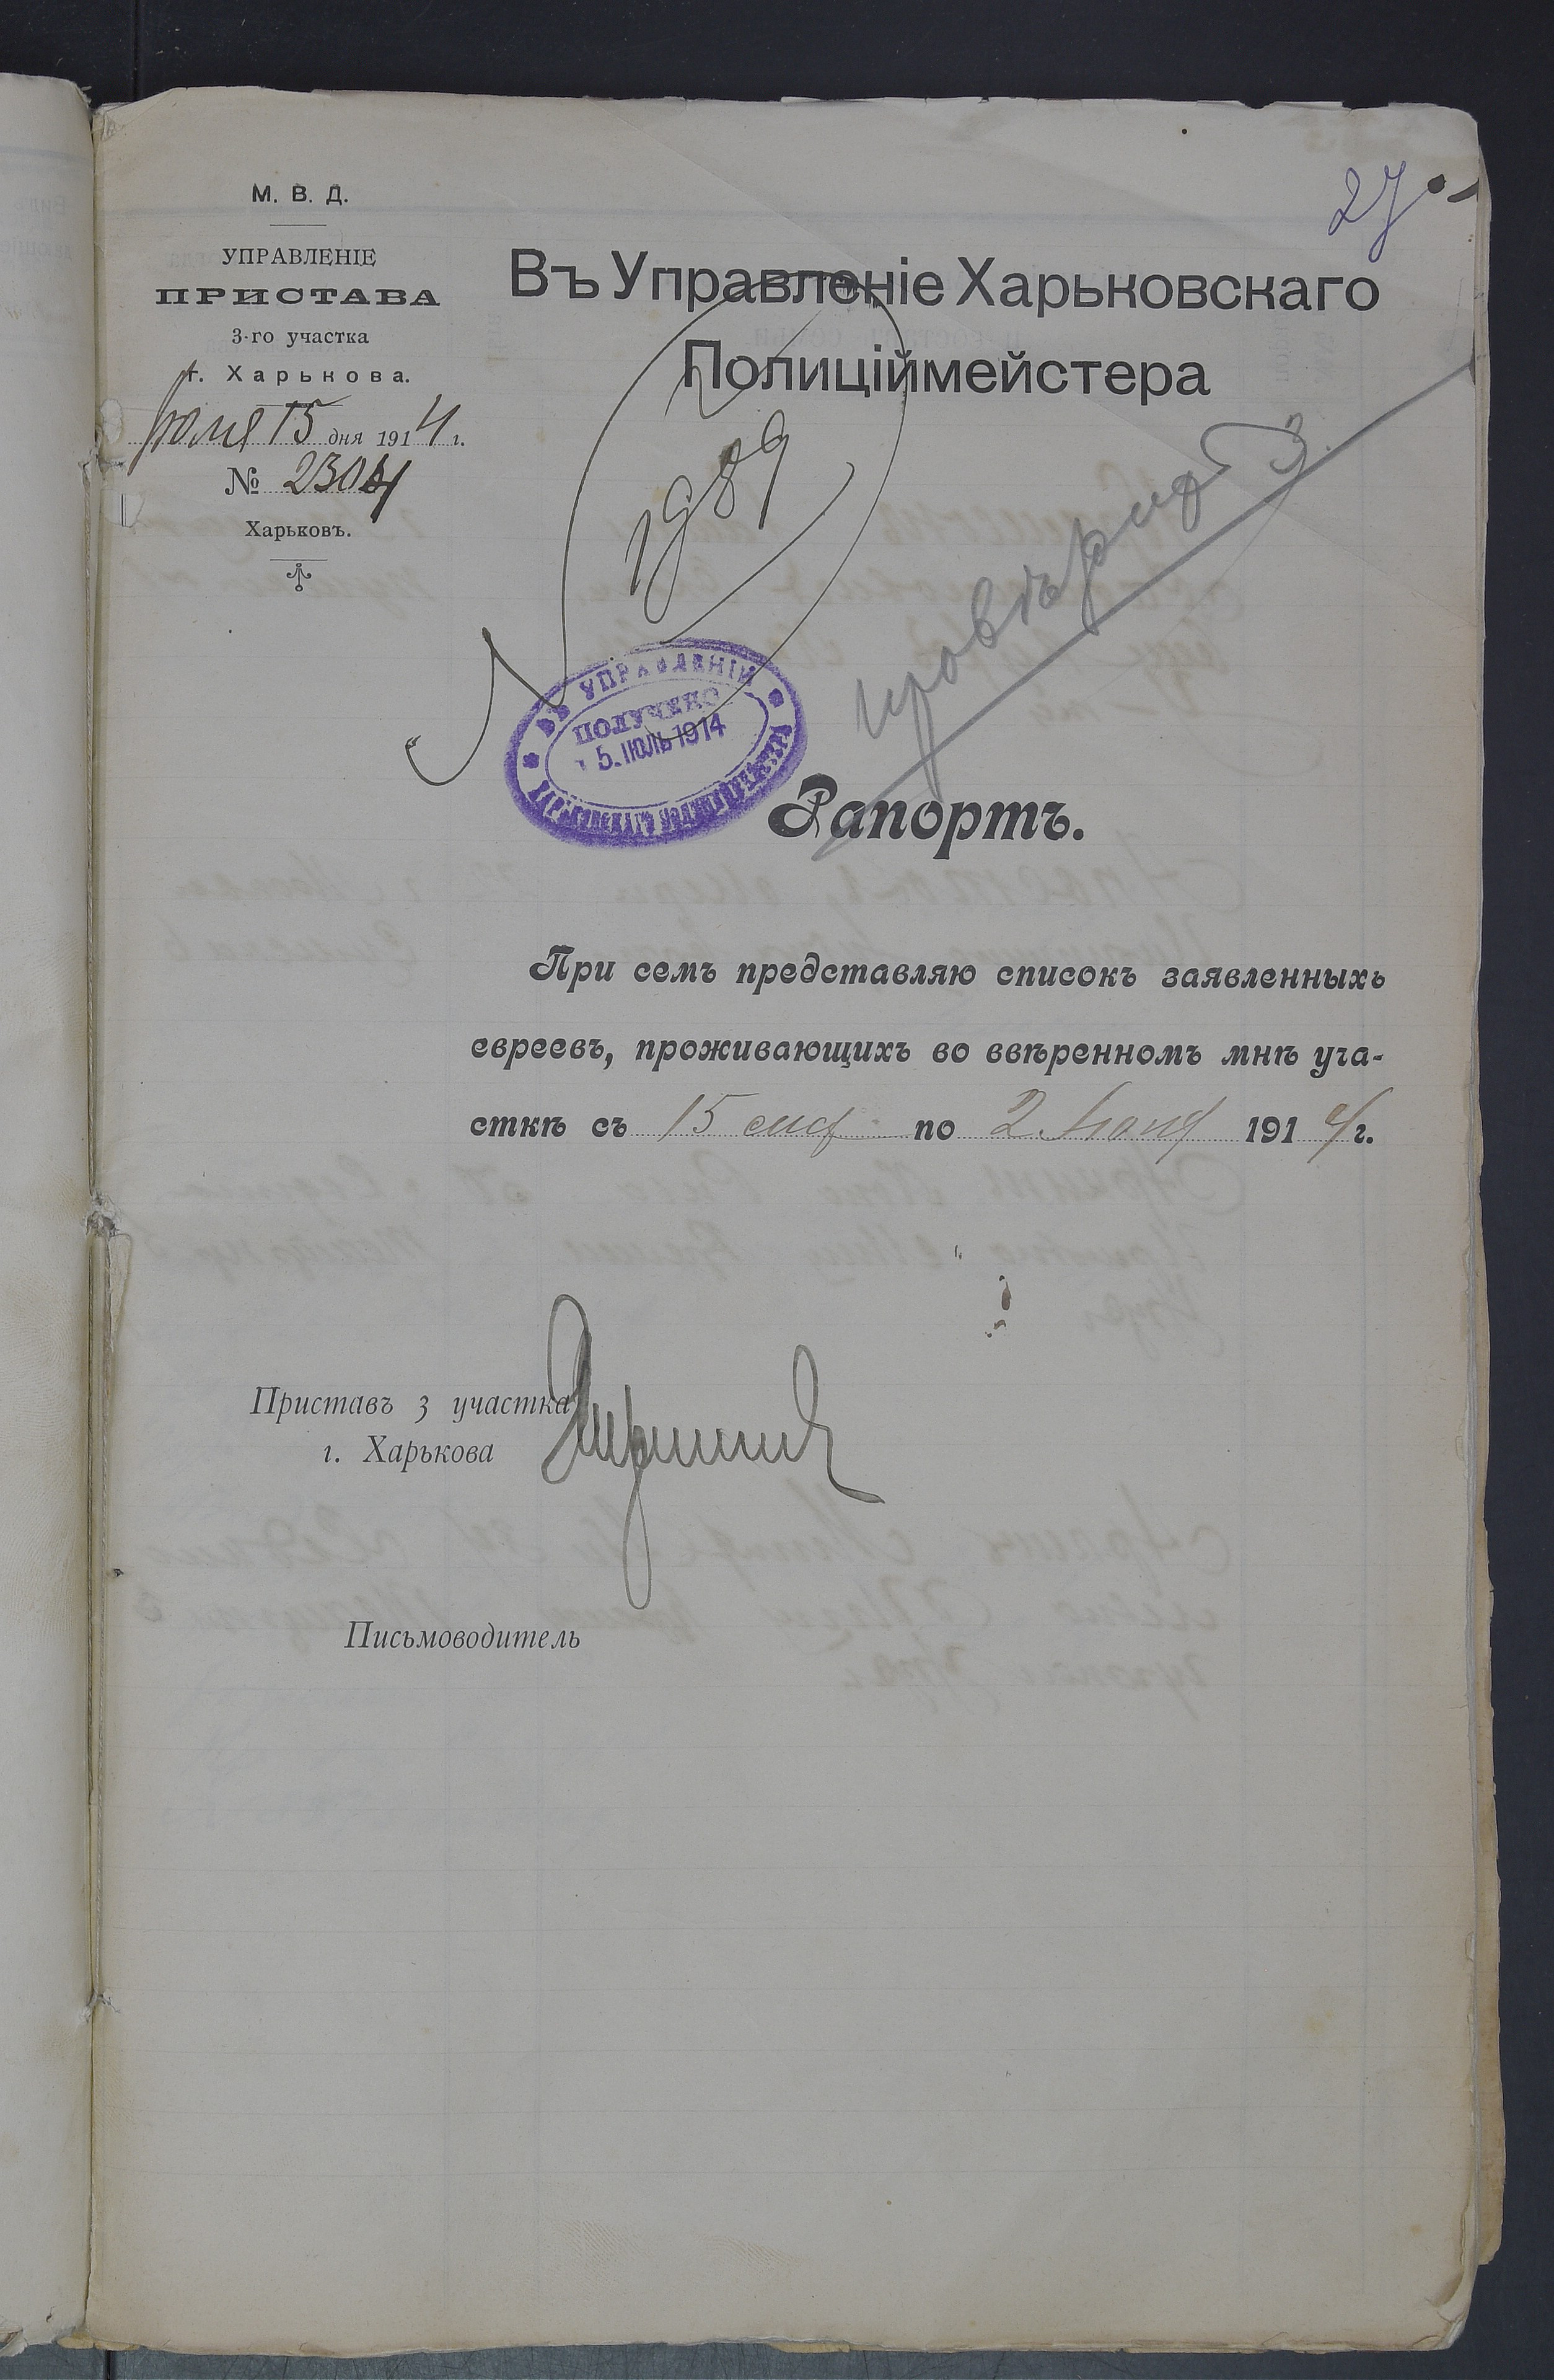 27
М. В. Д.
УПРАВЛЕНІЕ
ПРИСТАВА
3-го участка
г. Харькова.
Іюля 15 дня 1914 г.
№ 2304
Харьковъ.
Въ Управленіе Харьковскаго
Полиціймейстера
1989
ВЪ УПРАВЛЕНІИ
ПОЛУЧЕНО
15. ІЮЛЬ 1914
ХАРЬКОВСКАГО ПОЛИЦІЙМЕЙСТЕРА
Рапортъ.
При семъ представляю списокъ заявленныхъ
евреевъ, проживающихъ во ввѣренномъ мнѣ уча-
сткѣ съ 15 по 2 Іюля 1914 г.
Приставъ 3 участка
г. Харькова
Письмоводитель